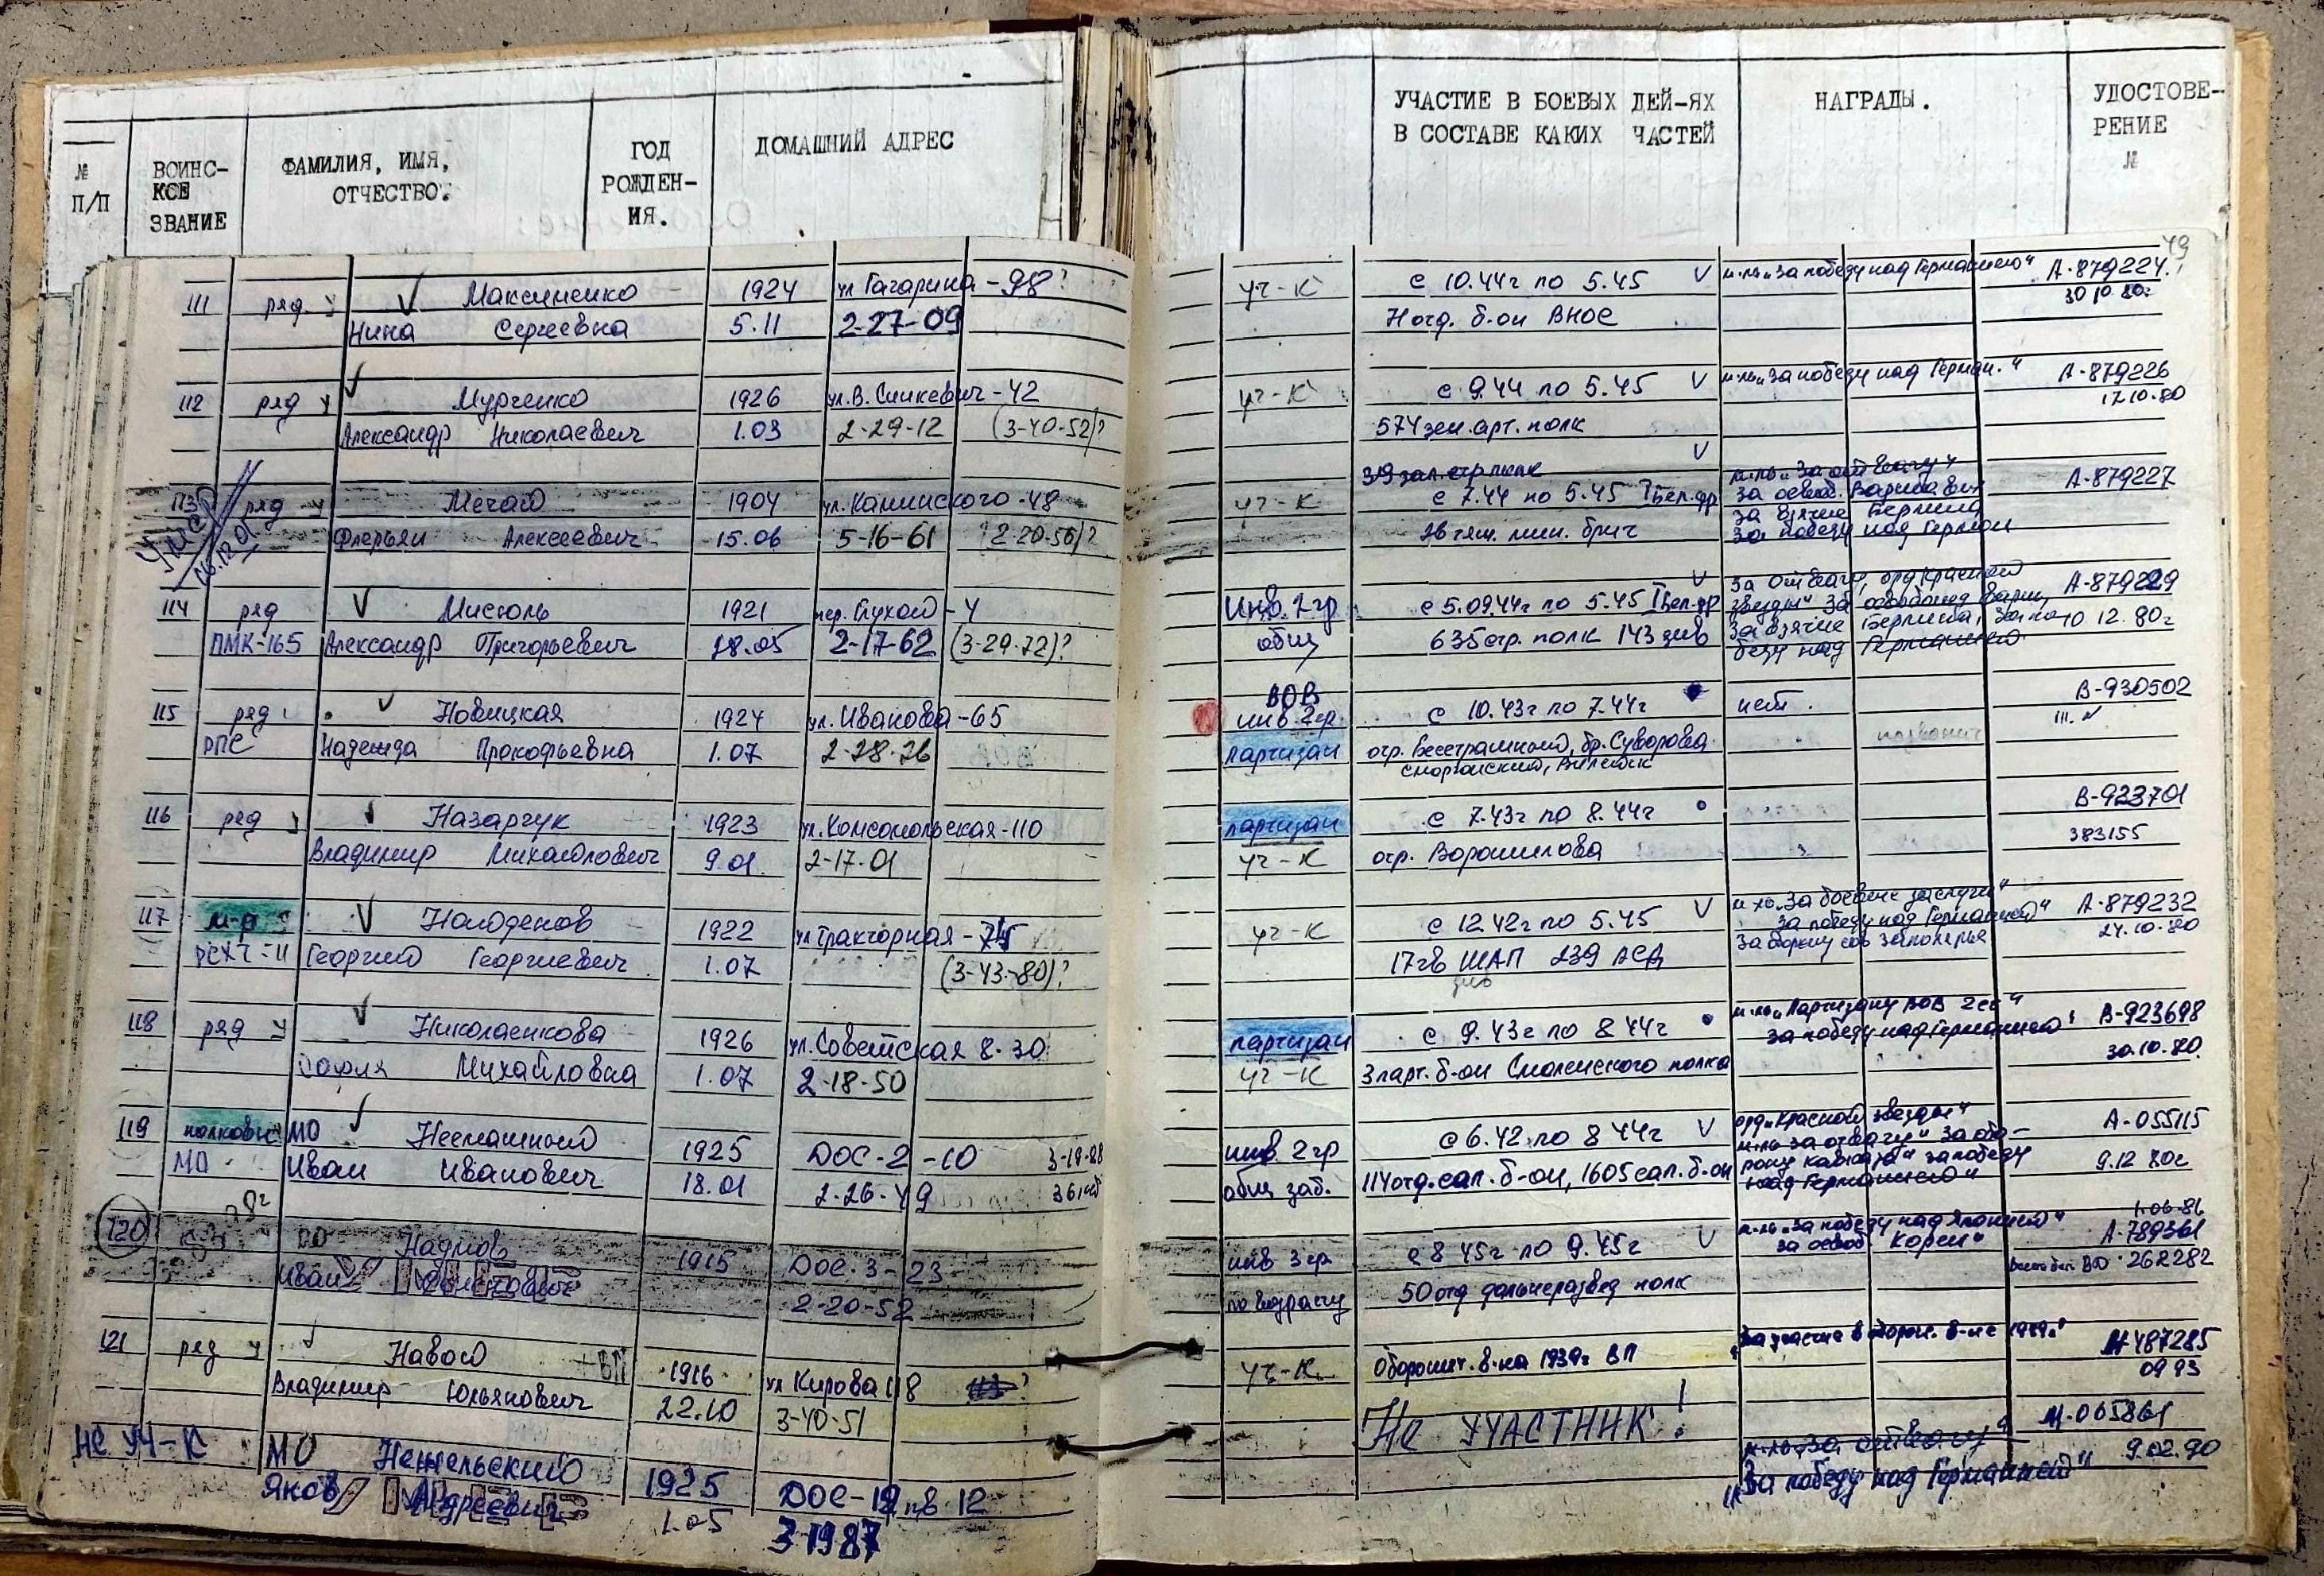 № П/П
ВОИНС-
КОЕ
ЗВАНИЕ
ФАМИЛИЯ, ИМЯ,
ОТЧЕСТВО.
ГОД
РОЖДЕН-
ИЯ.
ДОМАШНИЙ АДРЕС
УЧАСТИЕ В БОЕВЫХ ДЕЙ-ЯХ
В СОСТАВЕ КАКИХ ЧАСТЕЙ
НАГРАДЫ.
УДОСТОВЕ-
РЕНИЕ
№
49
111 ряд. у Максименко 1924 ул Гагарина - 98?
Нина Сергеевна 5.11 2-27-09
уч-к с 10.44г по 5.45 V м-ль "За победу над Германией" А-879224
7 отд. б-он ВНОС 30 10 80г
112 ряд у Мурченко 1926 ул. В. Синкевич - 42
Александр Николаевич 1.03 2-29-12 (3-40-52)?
уч-к с 9.44 по 5.45 V м-ль "За победу над Герман." А-879226
574 зен. арт. полк 17.10.80
113 ряд у Мечай 1904 ул. Каминского - 48
Умер
Алексеевич 15.06 5-16-61 (2-20-56)?
319 зап стр полк V м-ль "За отвагу"
уч-к с 7.44 по 5.45 I Бел. фр за освоб. Варшавы А-879227
за взятие Берлина
26 тяж. мин. бриг за победу над Герман
114 ряд V Мисюль 1921 пер. Глухой - 4
ПМК-165 Александр Григорьевич 28.05 2-17-62 (3-29-72)?
Инв. 2 гр с 5.09.44г по 5.45 I Бел. фр За Отвагу, орд Красной А-879229
общ 635 стр. полк 143 див За взятие Берлина, за по- 10 12. 80г
беду над Германией
115 ряд Новицкая 1924 ул. Иванова - 65
РПС Надежда Прокофьевна 1.07 2-28-26
ВОВ
инв. 2 гр. с 10.43г по 7.44г нет. В-930502
партизан отр. Бесстрашный, бр. Суворова позвонит
116 ряд у Назарчук 1923 ул. Комсомольская - 110
Владимир Михайлович 9.01 2-17-01
партизан с 7.43г по 8.44г В-923701
уч-к отр. Ворошилова 383155
117 м-р V Молоденов 1922 ул Тракторная - 75
РСХТ-11 Георгий Георгиевич 1.07 (3-43-80)?
уч-к с 12.42г по 5.45 V м-ль "За боевые заслуги" А-879232
за победу над Германией" 24.10.80
17 гв ШАП 239 АСД За оборону сов заполярья
див
118 ряд у Николаенкова 1926 ул. Советская 8-30
София Михайловна 1.07 2-18-50
партизан с 9.43г по 8 44г м-ль "Партизану ВОВ 2 ст" В-923698
за победу над Германией"
уч-к 3 парт. б-он Смоленского полка 30.10.80
119 полковн МО Неспашный 1925 ДОС-2-10 3-19-88
МО Иван Иванович 18.01 2-26-49
инв. 2 гр с 6.42 по 8 44г V орд "Красной звезды" А-055115
м-ль за отвагу" за обо-
рону Кавказа" за победу
общ заб. 114 отд. сап. б-он, 1605 сап. б-он над Германией" 9.12 80г
120 Иван 1915 ДОС. 3-23
2-20-52
инв 3 гр с 8 45г по 9.45г V м-ль "За победу над Японией" 1.06-86
за освоб Кореи" А-789361
по возрасту 50 отд дальнеразвед полк 262282
121 ряд у Навой + ВП 1916 ул Кирова 118
Владимир Юльянович 22.10 3-40-51
уч-к Оборонит. в-на 1939г ВП "За участие в оборон. в-не 1939г" 487285
09 93
НЕ УЧ-К МО Нежельский 1925 ДОС-12 кв 12
Яков Андреевич 1.05 3-1987
Не УЧАСТНИК! 065861
м-ль "За отвагу" 9.02.90
"За победу над Германией"